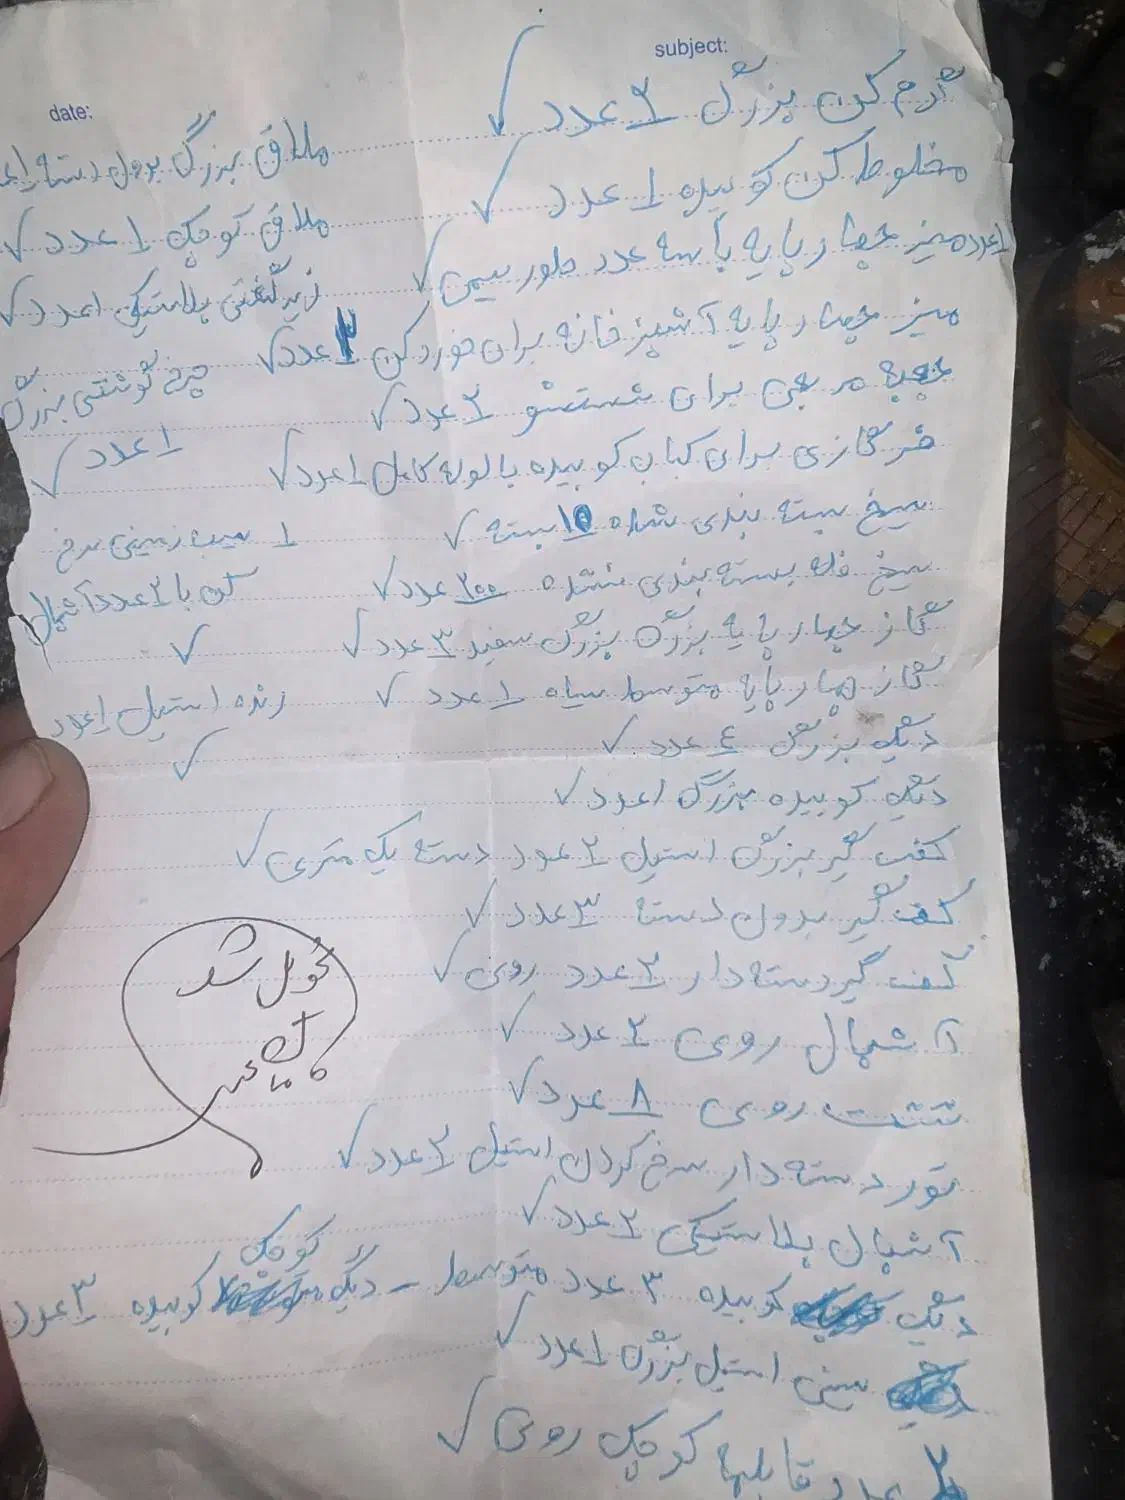 subject:
date:
گرم کن بزرگ ۲ عدد ✓
مخلوط کن کوبیده ۱ عدد ✓
۱عدد میز چهار پایه با سه عدد طور سیمی ✓
میز چهار پایه آشپزخانه برای خورد کن ۳ عدد ✓
جعبه مرجی برای شستشو ۲ عدد ✓
فر گازی برای کباب کوبیده با لوله کامل ۱ عدد ✓
سیخ بسته بندی شده ۱۵ بسته ✓
سیخ فله بسته بندی نشده ۲۰۰ عدد ✓
گاز چهار پایه بزرگ بزرگ سفید ۳ عدد ✓
گاز چهار پایه متوسط سیاه ۱ عدد ✓
دیگ بزرگ ٤ عدد ✓
دیگ کوبیده بزرگ ۱ عدد ✓
کفت گیر بزرگ استیل ۲ عدد دسته یک متری ✓
کفت گیر بدون دسته ۳ عدد ✓
کفت گیر دسته دار ۲ عدد روی ✓
آشپال روی ۲ عدد ✓
تشت روی ۸ عدد ✓
تور دسته دار سرخ کردن استیل ۳ عدد ✓
آشپال پلاستیکی ۲ عدد ✓
دیگ کوبیده ۳ عدد متوسط – دیگ کوچک کوبیده ۳ عدد
سینی استیل بزرگ ۱ عدد ✓
۲ عدد قابلها کوچک روی ✓
ملاق بزرگ بدون دسته
ملاق کوچک ۱ عدد ✓
زیر گفتی پلاستیکی ۱ عدد ✓
چرخ گوشتی بزرگ
۱ عدد ✓
۱ سیب زمینی سرخ
کن با ۲ عدد آشپال
✓
رنده استیل ۱ عدد
✓
تحویل شد